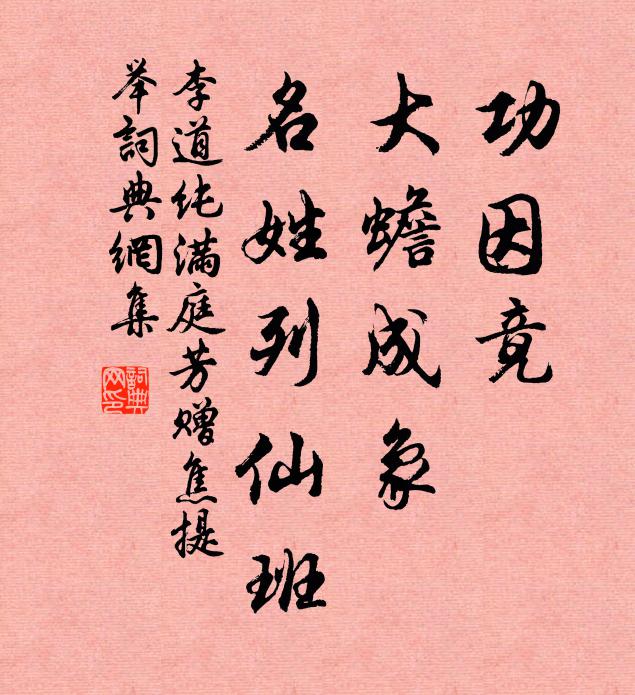 功因竟
大蟾成象
名姓列仙班
李道纯满庭芳赠焦提
举詞典網集
詞典网印